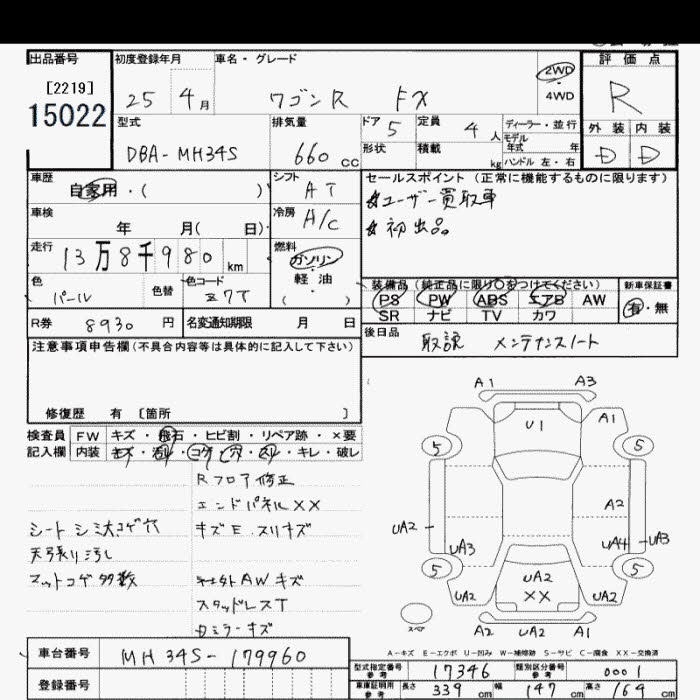 出品番号 初度登録年月 車名・グレード 2WD 評価点
[2219] 25 4月 ワゴンR FX ・ R
15022 4WD
型式 排気量 ドア 5 定員 4人 ディーラー・並行 外装 内装
DBA-MH34S 660cc 形状 積載 kg モデル年式 年 D D
ハンドル 左・右
車歴 自家用・( ) シフト AT セールスポイント (正常に機能するものに限ります)
☆ユーザー買取車
車検 年 月( 日) 冷房 A/C ☆初出品
走行 13万8千980km 燃料 ガソリン・軽油 ( )
装備品(純正品に限り○をつけてください) 新車保証書
色 パール 色替 色コード Z7T PS PW ABS エアB AW 有・無
SR ナビ TV カワ
R券 8930円 名変通知期限 月 日 後日品 取説 メンテナンスノート
注意事項申告欄(不具合内容等は具体的に記入して下さい)
修復歴 有 〔箇所 〕
検査員 FW キズ・飛石・ヒビ割・リペア跡・×要
記入欄 内装 キズ・汚れ・コゲ・穴・スリ・キレ・破レ
Rフロア修正
エンドパネルXX
シート シミ大コゲ穴 キズE スリキズ
天張り汚し
マットコゲ多数 社外AWキズ
スタッドレスT
ミラーキズ
A1 A3
U1 A1
5 5
A2
UA2 UA3 UA4 UA3
5 5
UA2 UA2 UA2
XX
スペア A2 UA2 A1
A-キズ E-エクボ U-凹み W-補修跡 S-サビ C-腐食 XX-交換済
車台番号 MH34S-179960 型式指定番号 参考 17346 類別区分番号 参考 0001
登録番号 車庫証明用 参考 長さ 339cm 幅 147cm 高さ 164cm